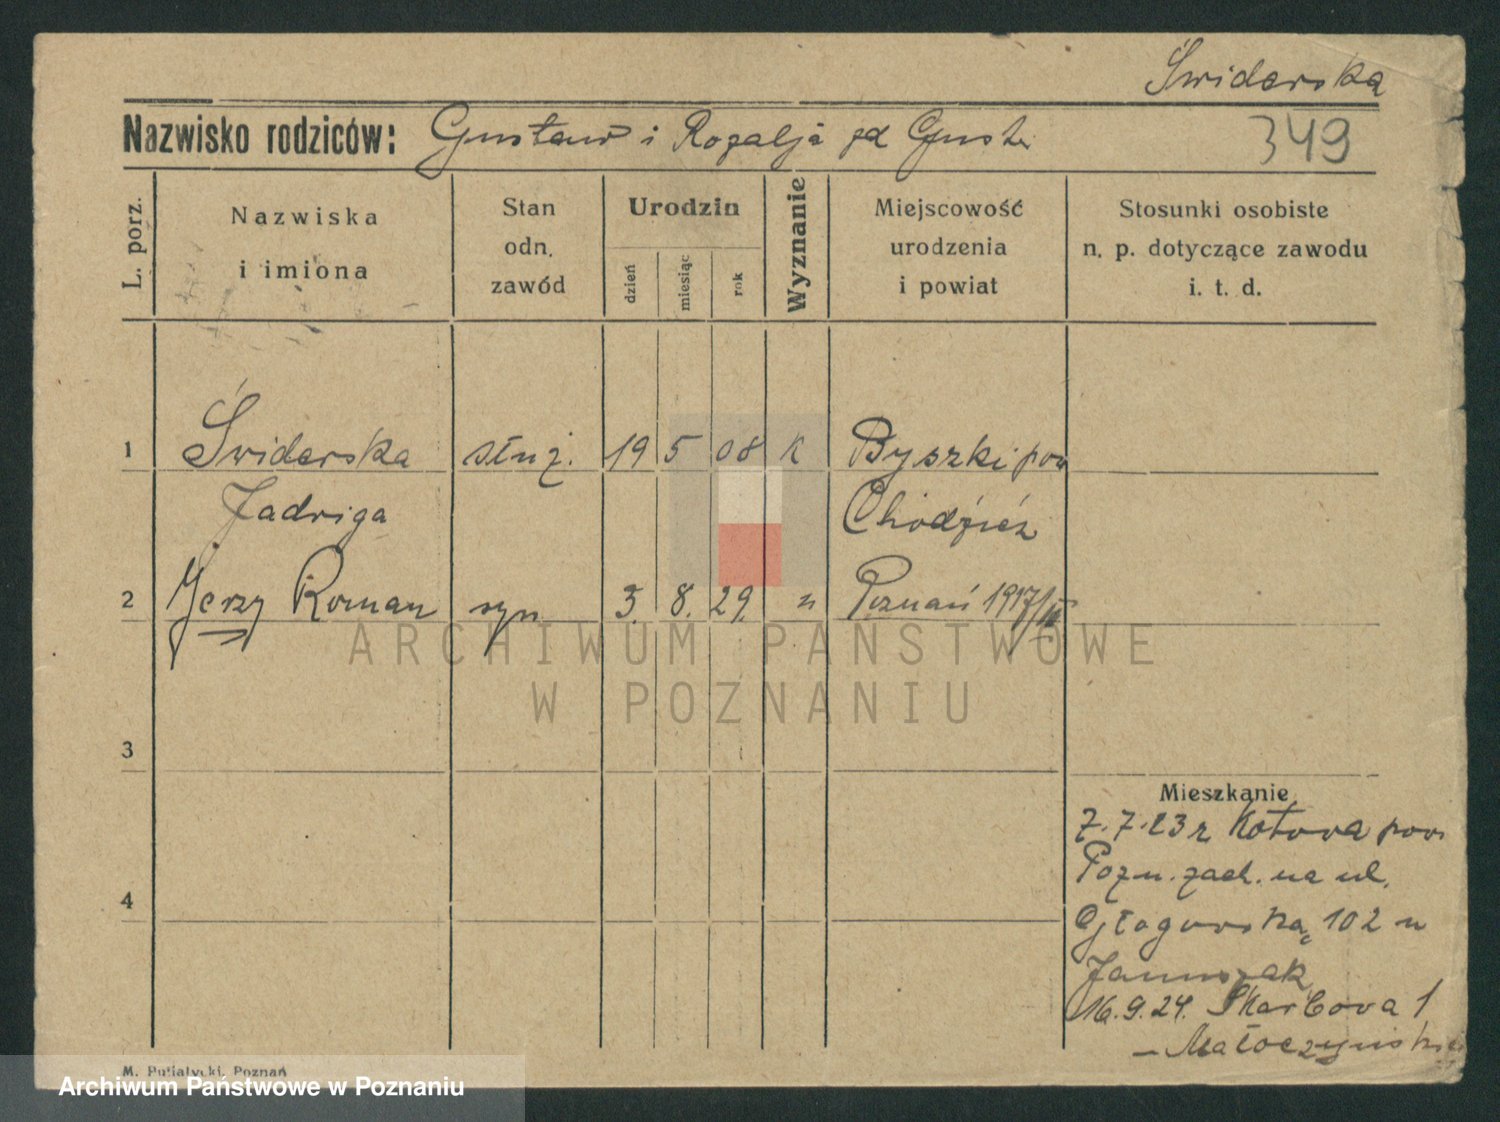 Świderska
Nazwisko rodziców: Gustaw i Rozalja zd Gust
349
L. porz.
Nazwiska
i imiona
Stan
odn.
zawód
Urodzin
dzień
miesiąc
rok
Wyznanie
Miejscowość
urodzenia
i powiat
Stosunki osobiste
n. p. dotyczące zawodu
i. t. d.
1 Świderska służ. 19 5 08 k Byszki pow
Jadwiga Chodzież
2 Jerzy Roman syn 3. 8. 29. " Poznań 1917/II
ARCHIWUM PAŃSTWOWE
W POZNANIU
3
Mieszkanie
7.7.23 r Kotowa pow
4
Pozn. zach. na ul.
Głogowską 102 u
Januszak
16.9.24. Skarbowa 1
– Małoczyński
M. Putiatycki, Poznań
Archiwum Państwowe w Poznaniu